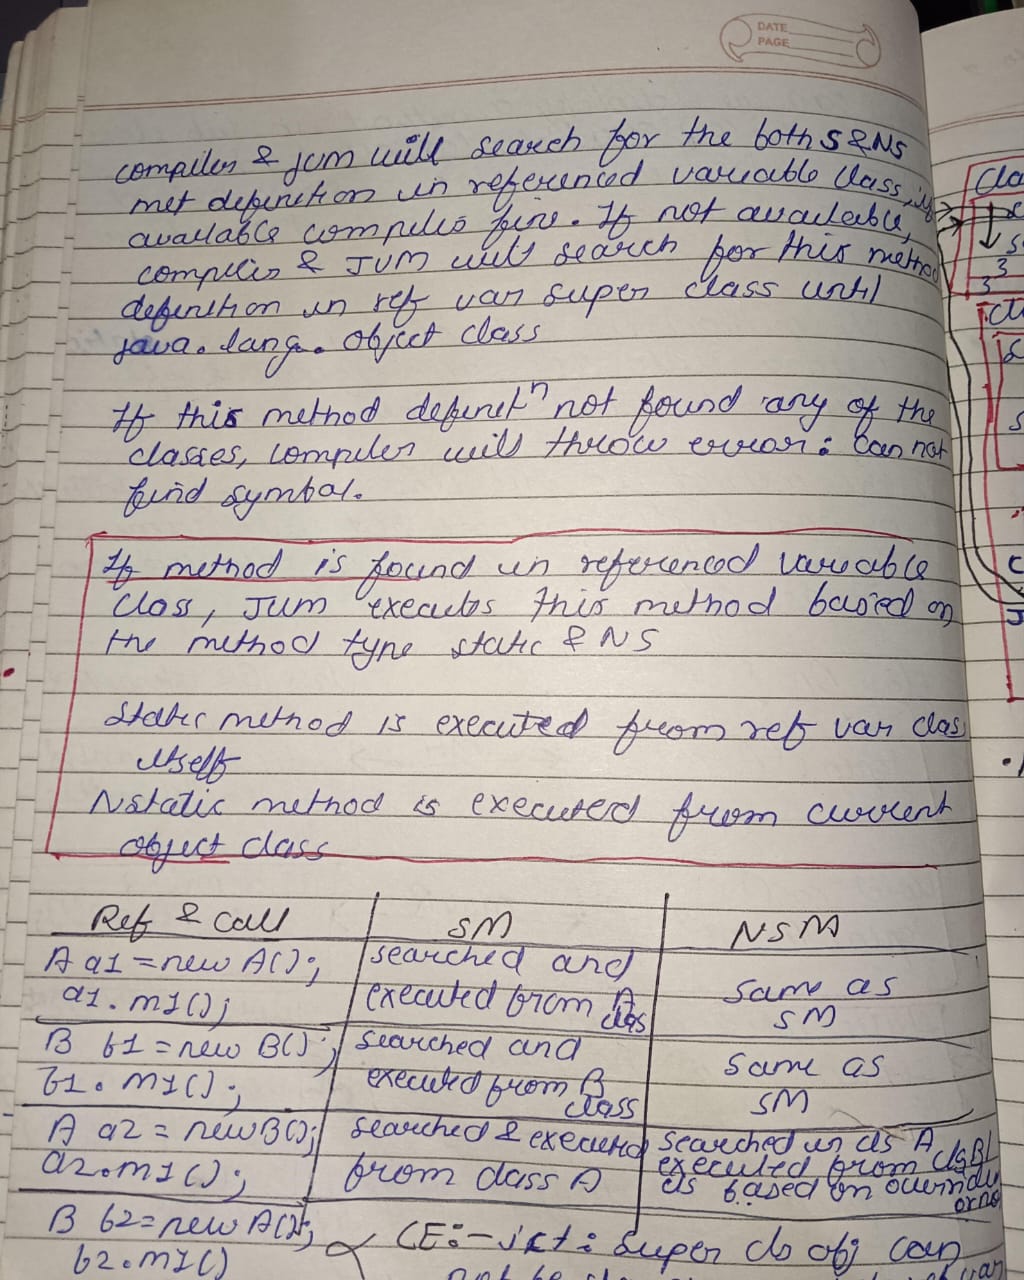 DATE
PAGE
compiler & JVM will search for the both S & NS
met definition in referenced variable class, if
available compiles fine. If not available,
compiler & JVM will search for this method
definition in ref var super class until
java.lang.Object class
If this method definitn not found any of the
classes, compiler will throw error: can not
find symbol.
If method is found in referenced variable
class, JVM executes this method based on
the method type static & NS
Static method is executed from ref var clas
itself
Nstatic method is executed from current
object class
Ref & call SM NSM
A a1 = new A(); searched and executed from A clas same as SM
a1.m1();
B b1 = new B(); searched and executed from B class same as SM
b1.m1();
A a2 = new B(); searched & executed from class A searched in cls A executed from cls B/ cls based on overridn or no
a2.m1();
B b2 = new A(); CE:- ict: super cls obj can
b2.m1() not be